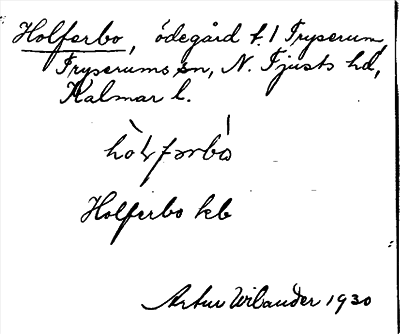 Holferbo, ödegård t. 1 Tryserum,
Tryserums sn, N. Tjusts hd,
Kalmar l.
Holferbo kb
Artur Wilander 1930